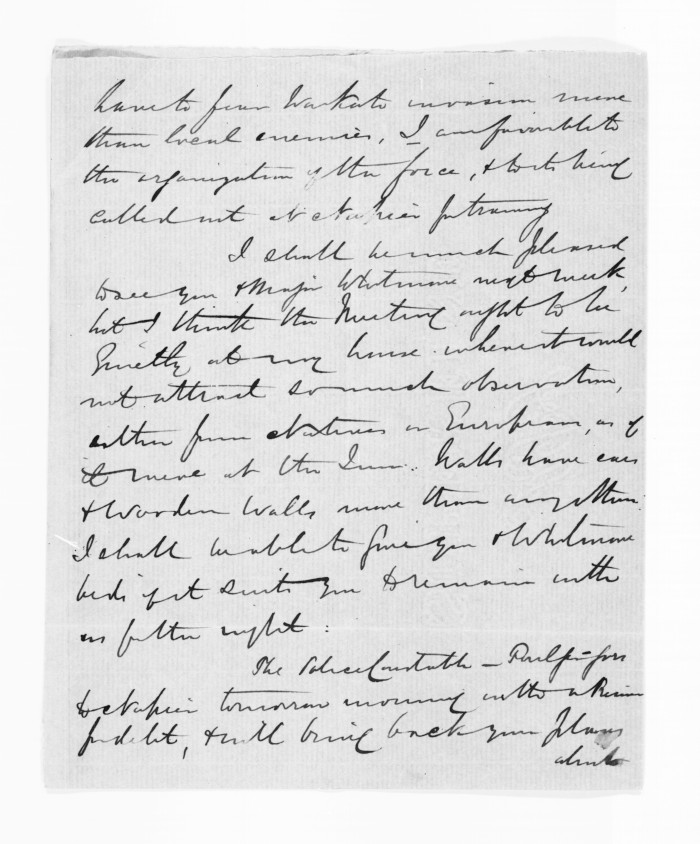 have to fear Waikato invasion more
than local enemies, I am favorable to
the organization of the force, & to its being
called out at Napier for training
I shall be much pleased
to see you & Major Whitmore next week,
but I think the Meeting ought to be
quietly at my house where it would
not attract so much observation,
either from Natives or Europeans, as if
it were at the Inn. Walls have ears
& wooden walls more than any other.
I shall be able to give you & Whitmore
beds if it suits you to remain with
us for the night.
The Police Constable — goes
to Napier tomorrow morning with a
for debt, & will bring back your plans